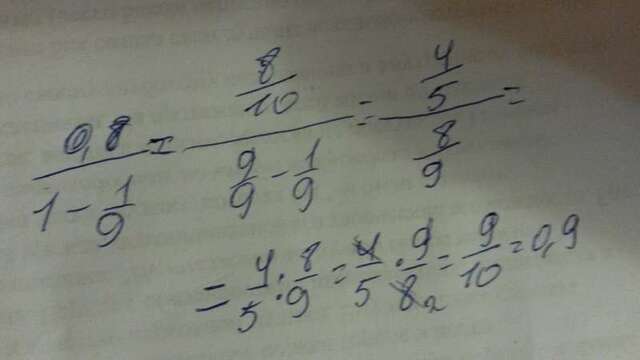 0,8/(1 - 1/9) = (8/10)/(9/9 - 1/9) = (4/5)/(8/9) =
= 4/5 : 8/9 = 4/5 · 9/8 2 = 9/10 = 0,9